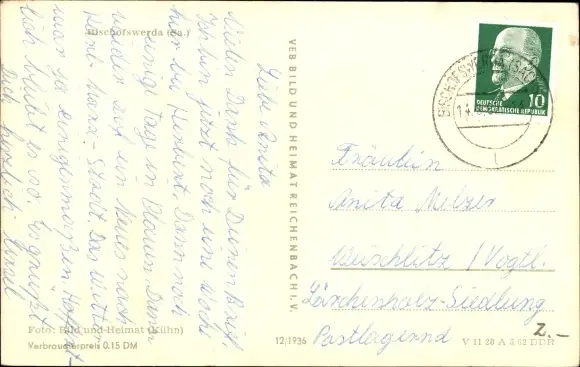 Bischofswerda (Sa.)
Liebe Anita
Vielen Dank für Deinen Brief
Ich bin jetzt noch eine Woche
hier bei Herbert. Dann noch
einige Tage in Plauen. Dann
wieder auf ein Neues nach
Karl-Marx-Stadt. Das Wetter
war ja einigermaßen. Hoffent-
lich bleibt es so. Es grüßt
Dich herzlich
Foto: Bild und Heimat (Kühn)
Verbraucherpreis 0,15 DM
VEB BILD UND HEIMAT REICHENBACH I. V.
12/1936
BISCHOFSWERDA
DEUTSCHE
DEMOKRATISCHE REPUBLIK
10
Fräulein
Anita Melzer
Weischlitz / Vogtl.
Lärchenholz-Siedlung
Postlagernd
Z.-
V 11 28 A 3 62 DDR